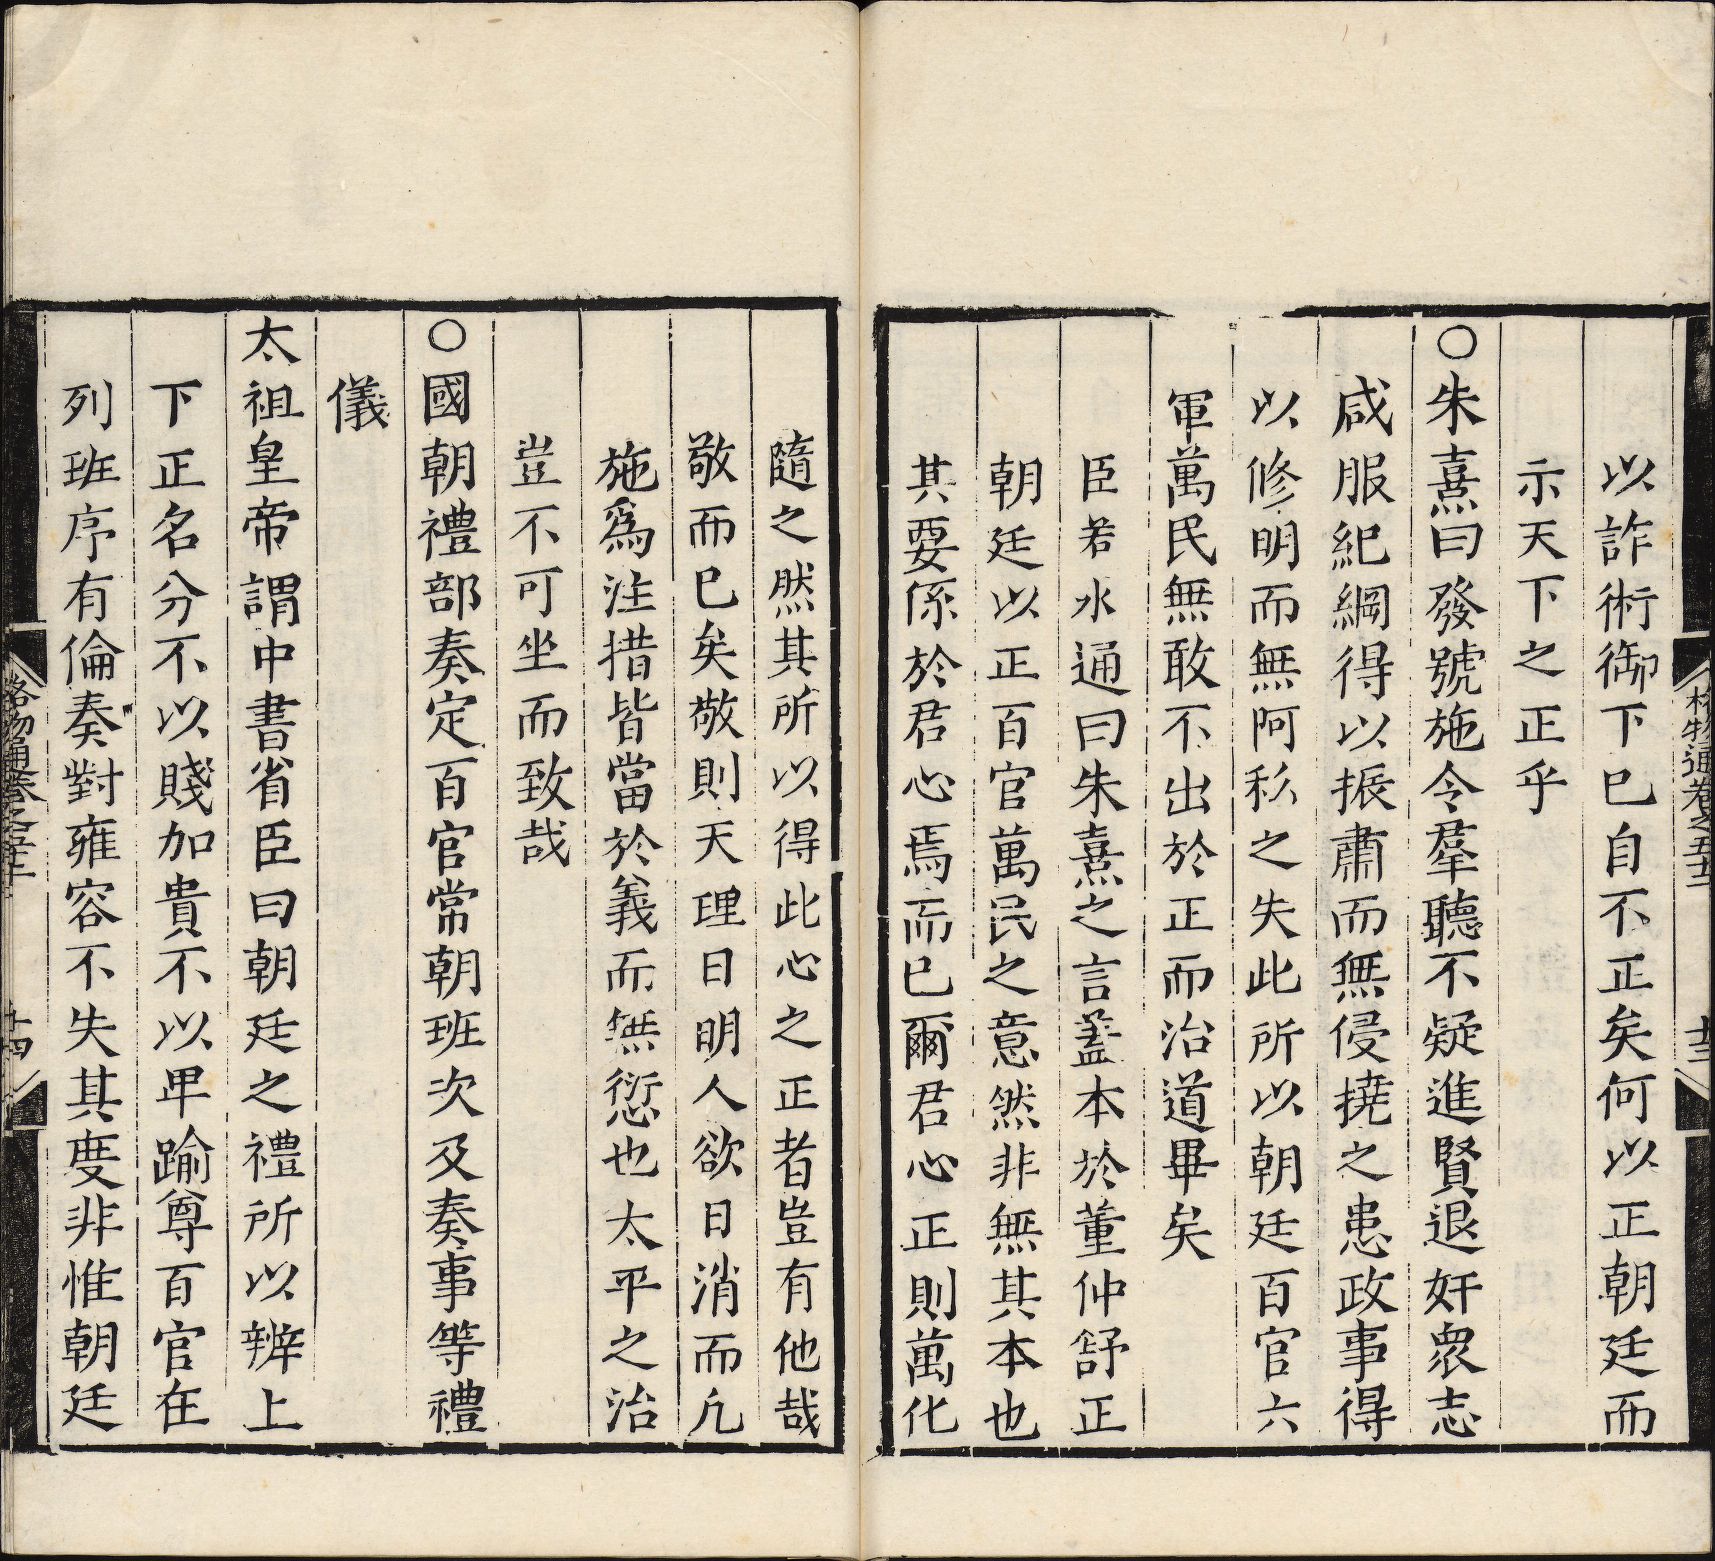 以詐術御下已自不正矣何以正朝廷而
示天下之正乎
○朱熹曰發號施令羣聽不疑進賢退奸衆志
咸服紀綱得以振肅而無侵撓之患政事得
以修明而無阿私之失此所以朝廷百官六
軍萬民無敢不出於正而治道畢矣
臣若水通曰朱熹之言葢本於董仲舒正
朝廷以正百官萬民之意然非無其本也
其要係於君心焉而已爾君心正則萬化
隨之然其所以得此心之正者豈有他哉
敬而已矣敬則天理日明人欲日消而凢
施爲注措皆當於義而無愆也太平之治
豈不可坐而致哉
○國朝禮部奏定百官常朝班次及奏事等禮
儀
太祖皇帝謂中書省臣曰朝廷之禮所以辨上
下正名分不以賤加貴不以卑踰尊百官在
列班序有倫奏對雍容不失其度非惟朝廷